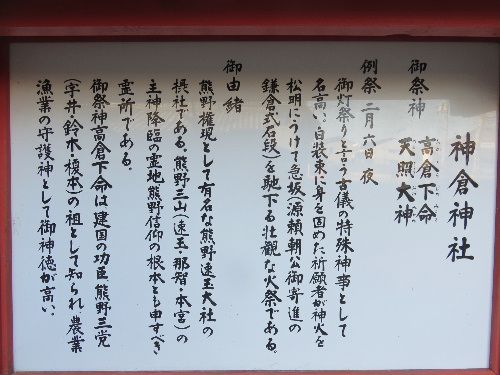 神倉神社
御祭神 高倉下命
天照大神
例祭 二月六日夜
御灯祭りと言う古儀の特殊神事として
名高い。白装束に身を固めた祈願者が神火を
松明にうけて急坂(源頼朝公御寄進の
鎌倉式石段)を馳下る壮観な火祭である。
御由緒
熊野権現として有名な熊野速玉大社の
摂社である。熊野三山(速玉・那智・本宮)の
主神降臨の霊地熊野信仰の根本とも申すべき
霊所である。
御祭神高倉下命は建国の功臣熊野三党
(宇井・鈴木・榎本)の祖として知られ、農業
漁業の守護神として御神徳が高い、